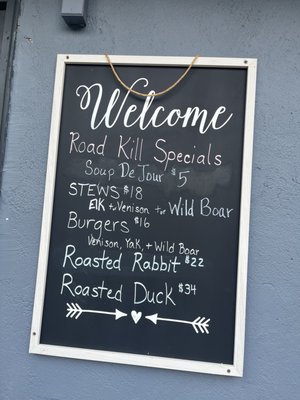 Welcome
Road Kill Specials
Soup De Jour $5
STEWS $18
Elk + Venison + Wild Boar
Burgers $16
Venison, Yak, + Wild Boar
Roasted Rabbit $22
Roasted Duck $34